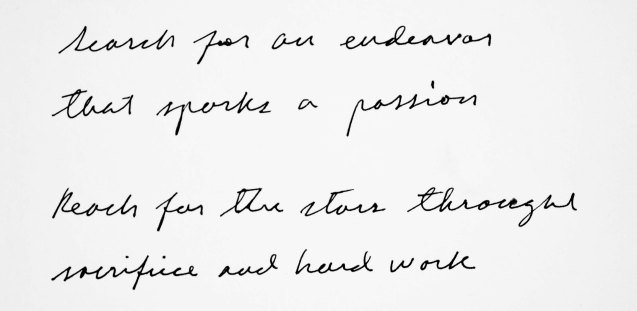 Search for an endeavor
that sparks a passion
Reach for the stars through
sacrifice and hard work